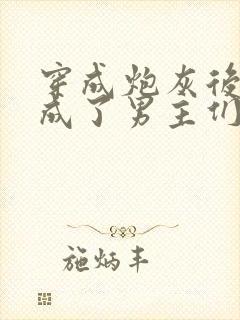 穿成炮灰後
成了男主们
施炳丰